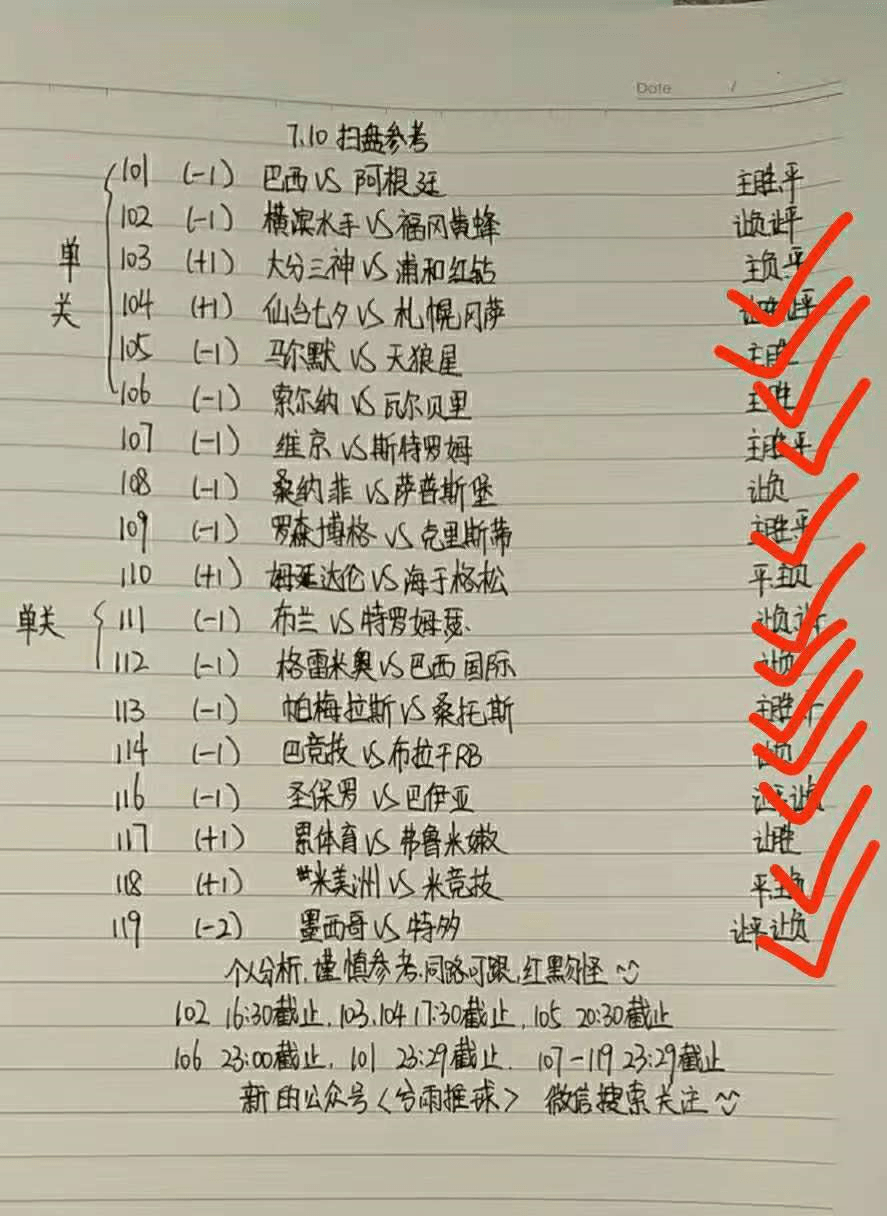 Date /
7.10 扫盘参考
101 (-1) 巴西 VS 阿根廷 主胜.平
102 (-1) 横滨水手 VS 福冈黄蜂 让负让平
单关 103 (+1) 大分三神 VS 浦和红钻 主负.平
104 (+1) 仙台七夕 VS 札幌冈萨
105 (-1) 马尔默 VS 天狼星 主胜
106 (-1) 索尔纳 VS 瓦尔贝里 主胜
107 (-1) 维京 VS 斯特罗姆 主胜平
108 (-1) 桑纳菲 VS 萨普斯堡 让负
109 (-1) 罗森博格 VS 克里斯蒂 主胜平
110 (+1) 姆延达伦 VS 海于格松 平.主负
单关 111 (-1) 布兰 VS 特罗姆瑟. 让负
112 (-1) 格雷米奥 VS 巴西国际 让负
113 (-1) 帕梅拉斯 VS 桑托斯 主胜平
114 (-1) 巴竞技 VS 布拉干RB 让负
116 (-1) 圣保罗 VS 巴伊亚 让平让负
117 (+1) 累体育 VS 弗鲁米嫩 让胜
118 (+1) 米美洲 VS 米竞技 平.主负
119 (-2) 墨西哥 VS 特多 让平让负
个人分析,谨慎参考.同路可跟,红黑勿怪~
102 16:30截止.103.104 17:30截止.105 20:30截止
106 23:00截止. 101 23:29截止. 107-119 23:29截止
新的公众号<兮雨推球> 微信搜索关注~